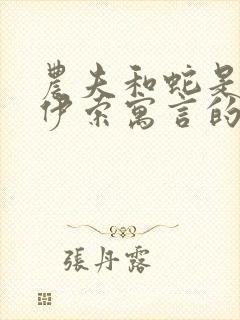 農夫和蛇是
伊索寓言的
張丹露